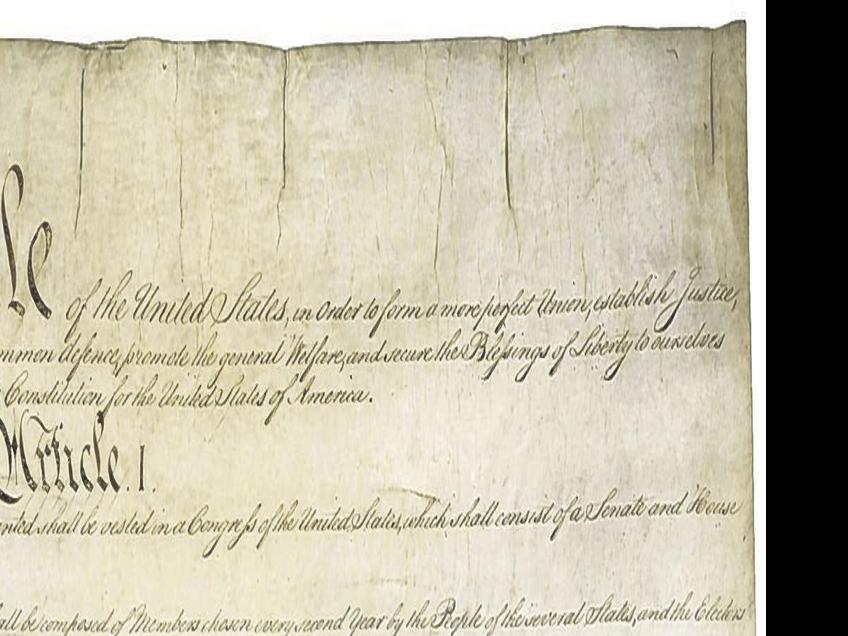 le
of the United States, in Order to form a more perfect Union, establish Justice,
mmon defence, promote the general Welfare, and secure the Blessings of Liberty to ourselves
Constitution for the United States of America.
Article. I.
anted shall be vested in a Congress of the United States, which shall consist of a Senate and House
all be composed of Members chosen every second Year by the People of the several States, and the Electors